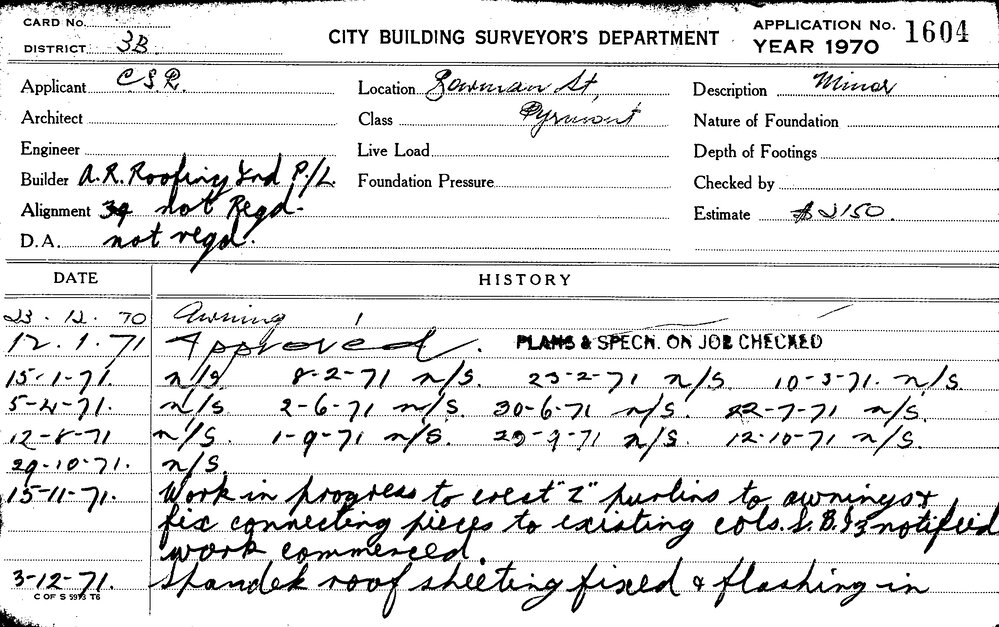 CARD No.
DISTRICT 3B
CITY BUILDING SURVEYOR'S DEPARTMENT
APPLICATION No. 1604
YEAR 1970
Applicant CSR. Location Bowman St, Description Minor
Architect Class Pyrmont Nature of Foundation
Engineer Live Load Depth of Footings
Builder A.R. Roofing Ind P/L. Foundation Pressure Checked by
Alignment not Reqd. Estimate $2150.
D.A. not reqd.
DATE HISTORY
23.12.70 Awning
12.1.71 Approved. PLANS & SPECN. ON JOB CHECKED
15-1-71. n/s 8-2-71 n/s. 23-2-71 n/s. 10-3-71. n/s
5-4-71. n/s 2-6-71 n/s. 30-6-71 n/s. 22-7-71 n/s.
12-8-71 n/s. 1-9-71 n/s. 29-9-71 n/s. 12-10-71 n/s.
29-10-71. n/s.
15-11-71. Work in progress to erect "Z" purlins to awnings &
fix connecting pieces to existing cols. notified
work commenced.
3-12-71. Spandek roof sheeting fixed & flashing in
C OF S 5973 T6